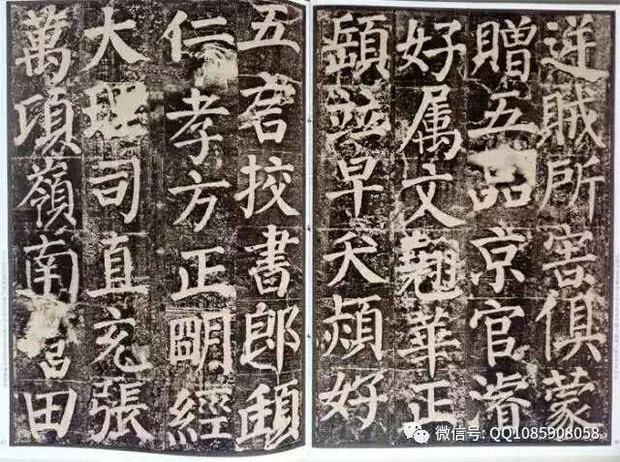 逆賊所害俱蒙
贈五品京官濬
好属文翹華正
顗竝早夭熲好
五言挍書郎頲
仁孝方正眀經
大理司直充張
萬頃嶺南營田
微信号: QQ1085908058